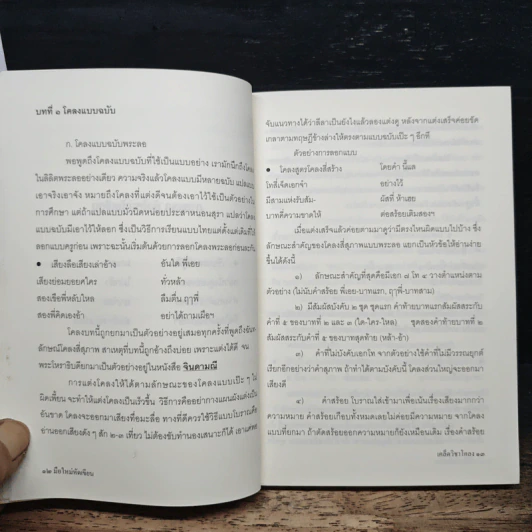 บทที่ ๑ โคลงแบบฉบับ
ก. โคลงแบบฉบับพระลอ
พอพูดถึงโคลงแบบฉบับที่ใช้เป็นแบบอย่าง เรามักนึกถึงโคลง
ในลิลิตพระลออย่างเดียว ความจริงแล้วโคลงแบบมีหลายฉบับ แปลแบบ
เอาจริงเอาจัง หมายถึงโคลงที่แต่งดีจนต้องเอาไว้ใช้เป็นตัวอย่างใน
การศึกษา แต่ถ้าแปลแบบมั่วนิดหน่อยประสาหนอนสุรา แปลว่าโคลง
ฉบับมีเอาไว้ให้ลอก ซึ่งเป็นวิธีการเรียนแบบไทยแต่ดั้งแต่เดิมที่ใช้
ลอกแบบครูก่อน เพราะฉะนั้นเริ่มต้นด้วยการลอกโคลงพระลอก่อนละกัน
● เสียงลือเสียงเล่าอ้าง อันใด พี่เอย
เสียงย่อมยอยศใคร ทั่วหล้า
สองเขือพี่หลับใหล ลืมตื่น ฤๅพี่
สองพี่คิดเองอ้า อย่าได้ถามเผือฯ
โคลงบทนี้ถูกยกมาเป็นตัวอย่างอยู่เสมอทุกครั้งที่พูดถึงฉัน
ลักษณ์โคลงสี่สุภาพ สาเหตุที่บทนี้ถูกอ้างถึงบ่อย เพราะแต่งได้ดี จน
พระโหราธิบดียกมาเป็นตัวอย่างอยู่ในหนังสือ จินดามณี
การแต่งโคลงให้ได้ตามลักษณะของโคลงแบบเป๊ะ ๆ ไม่
ผิดเพี้ยน จะทำให้แต่งโคลงเป็นเร็วขึ้น วิธีการคืออย่ากางแผนผังแต่งเป็น
อันขาด โคลงจะออกมาเสียงทื่อมะลื่อ ทางที่ดีควรใช้วิธีแบบโบราณคือ
อ่านออกเสียงดัง ๆ สัก ๒-๓ เที่ยว ไม่ต้องขับทำนองเสนาะก็ได้ เอาแค่พอ
๑๒ มือใหม่หัดเขียน
จับแนวทางได้ว่าลีลาเป็นยังไงแล้วลองแต่งดู หลังจากแต่งเสร็จค่อยขัด
เกลาตามทฤษฎีข้างล่างให้ตรงตามแบบฉบับเป๊ะ ๆ อีกที
ตัวอย่างการลอกแบบ
● โคลงสูตรโคลงสี่สร้าง โดยคำ นี้แล
โทสี่เจ็ดเอกจำ อย่างไว้
มีสามแห่งรับสัม- ผัสที่ ห้าเฮย
บาทที่ความขาดให้ ต่อสร้อยเติมสองฯ
เมื่อแต่งเสร็จแล้วค่อยตามมาดูว่ามีตรงไหนผิดแบบไปบ้าง ซึ่ง
ลักษณะสำคัญของโคลงสี่สุภาพแบบพระลอ แยกเป็นหัวข้อให้อ่านง่าย
ขึ้นได้ดังนี้
๑) ลักษณะสำคัญที่สุดคือมีเอก ๗ โท ๔ วางตำแหน่งตาม
ตัวอย่าง (ไม่นับคำสร้อย พี่เอย-บาทแรก, ฤๅพี่-บาทสาม)
๒) มีสัมผัสบังคับ ๒ ชุด ชุดแรก คำท้ายบาทแรกสัมผัสสระกับ
คำที่ ๕ ของบาทที่ ๒ และ ๓ (ใด-ใคร-ไหล) ชุดสองคำท้ายบาทที่ ๒
สัมผัสสระกับคำที่ ๕ ของบาทสุดท้าย (หล้า-อ้า)
๓) คำที่ไม่บังคับเอกโท จากตัวอย่างใช้คำที่ไม่มีวรรณยุกต์
เรียกอีกอย่างว่าคำสุภาพ ถ้าทำได้ตามบังคับนี้ โคลงส่วนใหญ่จะออกมา
เสียงดี
๔) คำสร้อย โบราณใส่เข้ามาเพื่อเน้นเรื่องเสียงมากกว่า
ความหมาย คำสร้อยเกือบทั้งหมดเลยไม่ค่อยมีความหมาย จากโคลง
แบบที่ยกมา ถ้าตัดสร้อยออกความหมายก็ยังเหมือนเดิม เรื่องคำสร้อย
เคล็ดวิชาโคลง ๑๓